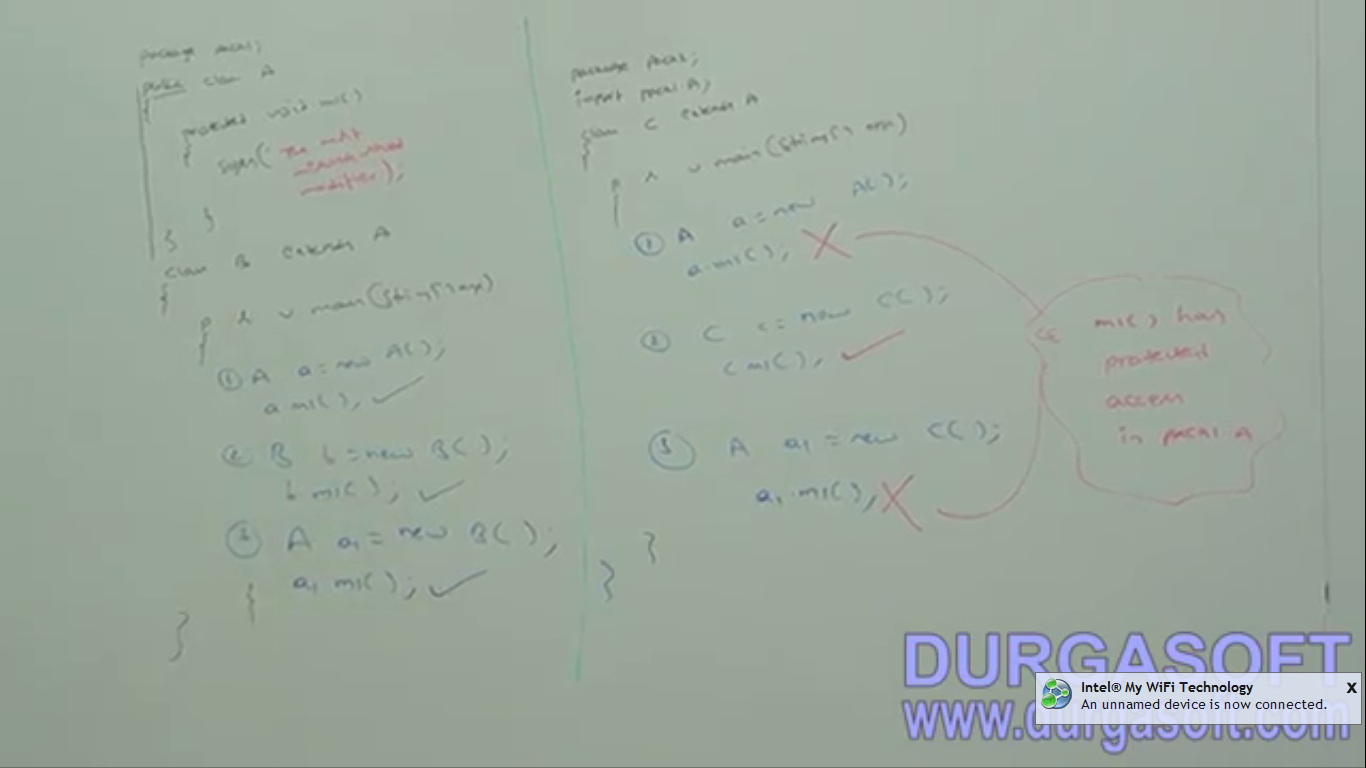 package pack1;
public class A
{
protected void m1()
{
sopln("The most
misunderstood
modifier");
}
}
class B extends A
{
p s v main(String[] args)
{
① A a = new A();
a.m1(); ✓
② B b = new B();
b.m1(); ✓
③ A a1 = new B();
a1.m1(); ✓
}
}
package pack2;
import pack1.A;
class C extends A
{
p s v main(String[] args)
{
① A a = new A();
a.m1(); X
② C c = new C();
c.m1(); ✓
③ A a1 = new C();
a1.m1(); X
}
}
CE m1() has
protected
access
in pack1.A
DURGASOFT
www.durgasoft.com
Intel® My WiFi Technology x
An unnamed device is now connected.